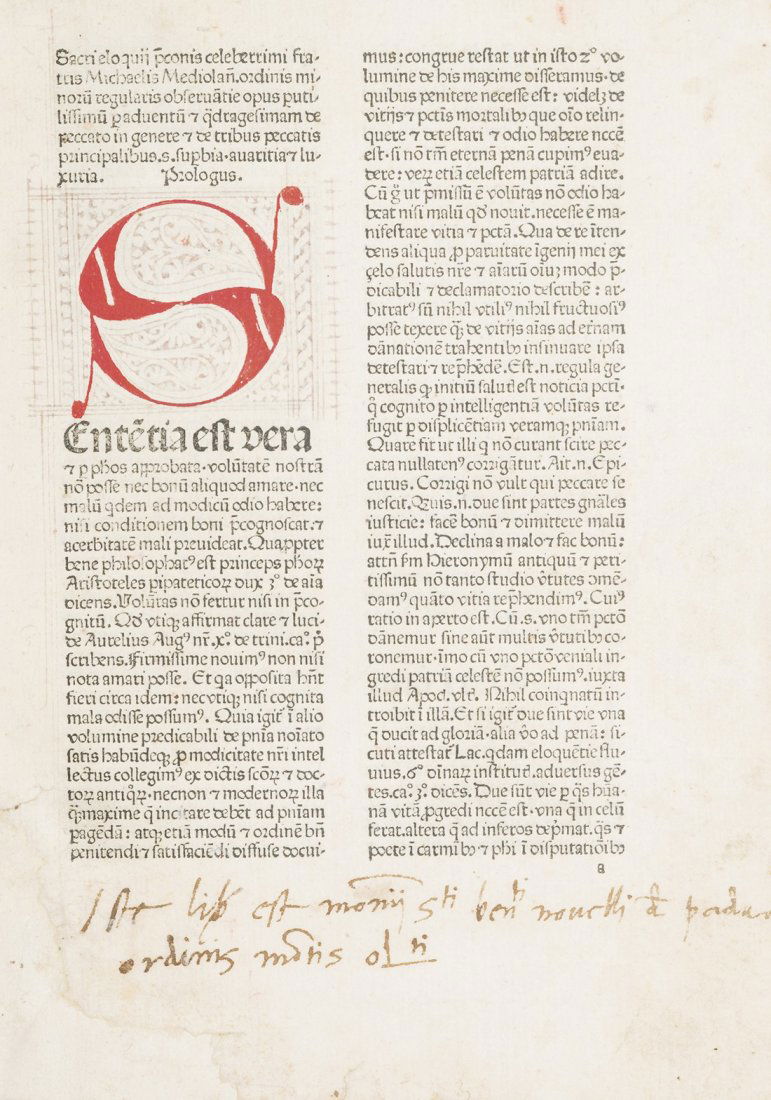 Sacri eloquij p̄conis celeberrimi fra-
tris Michaelis Mediolan̄.ordinis mi-
norū regularis obseruātie opus ꝑuti-
lissimū ꝑ aduentū ⁊ q̄dragesimam de
peccato in genere ⁊ de tribus peccatis
principalibus.s.suꝑbia.auaritia ⁊ lu-
xuria. Prologus.
S
Entētia est vera
⁊ ꝑ phos aꝓbata.volūtatē nostrā
nō posse nec bonū aliquod amare.nec
malū qdem ad modicū odio habere:
nisi conditionem boni p̄cognoscat.⁊
acerbitatē mali preuideat.Quaꝓpter
bene philosophatꝰ est princeps phoꝝ
Aristoteles pipateticoꝝ dux 3° de aīa
dicens.Volūtas nō fertur nisi in p̄co-
gnitū. Qd̄ vtiqꝫ affirmat clare ⁊ luci-
de Aurelius Augꝰ nr̄.x°.de trini.ca° p̄
scribens.Firmissime nouimꝰ non nisi
nota amari posse. Et qa opposita hn̄t
fieri circa idem: nec vtiqꝫ nisi cognita
mala odisse possumꝰ. Quia igit̄ ī alio
volumine predicabili de pnīa noīato
satis habūdeqꝫ ꝓ modicitate nr̄i intel
lectus collegimꝰ ex dictis scōꝝ ⁊ doc-
toꝝ antiqꝝ.necnon ⁊ modernoꝝ illa
qꝫ maxime q̄ incitare debēt ad pnīam
pagēdā: atqꝫ etiā modū ⁊ ordinē bn̄
penitendi ⁊ satisfaciēdi diffuse docui-
mus: congrue restat ut in isto 2° vo-
lumine de his maxime disseramus.de
quibus penitere necesse est: videlꝫ de
vitijs ⁊ pctīs mortalibꝰ que oīo relin-
quere ⁊ detestari ⁊ odio habere nccē
est.si nō tm̄ eternā penā cupimꝰ eua-
dere: veꝝ etiā celestem patriā adire.
Cū g̊ ut p̄missū ē volūtas nō odio ha-
beat nisi malū qd̄ nouit.necesse ē ma-
nifestare vitia ⁊ pctā.Qua de re īten-
dens aliqua ꝓ paruitate īgenij mei ex
çelo salutis nr̄e ⁊ aīarū oīuꝫ modo p̄-
dicabili ⁊ declamatorio describē: ar-
bitratꝰ sū nihil vtiliꝰ nihil fructuosiꝰ
posse texere qꝫ de vitijs aīas ad et̄nam
dānationē trahentibꝰ insinuare ipsa
detestari ⁊ rep̄hēdē.Est.n.regula ge-
neralis ꝙ initiū salutꝭ est noticia pctī.
q̊ cognito ꝑ intelligentiā volūtas re-
fugit ꝑ displicentiam veramqꝫ pnīam.
Quare fit ut illi q nō curant scire pec-
cata nullatenꝰ corrigātur. Ait.n.Epi-
curus. Corrigi nō vult qui peccare se
nescit.Quis.n.due sint partes gn̄ales
iusticie: facē bonū ⁊ dimittere malū
iux̄ illud.Declina a malo ⁊ fac bonū:
attn̄ fm Hieronymū antiquū ⁊ peri-
tissimū nō tanto studio v̄tutes ↄmē-
damꝰ quāto vitia rep̄hendimꝰ. Cuiꝰ
ratio in aperto est.Cū.s.vno tm̄ pctō
dānemur sine aūt multis v̄tutibꝰ co-
ronemur.īmo cū vno pctō veniali in-
gredi patriā celestē nō possumꝰ.iuxta
illud Apoc̄.vlt̄. Nihil coinqnatū in-
troibit ī illā.Et si igit̄ due sint vie vna
q̄ ducit ad gloriā.alia v̄o ad penā: si-
cuti attestat̄ Lac.qdam eloquētie flu-
uius.6° dīnaꝝ institut̄.aduersus gē-
tes.ca°.3°.dicēs. Due sūt vie ꝑ q̄s hūa-
nā vitā ꝓgredi nccē est.vna q̄ in celū
ferat.altera q̄ ad inferos dep̄mat.q̄s ⁊
poete ī carmībꝰ ⁊ phi ī disputatiōībꝰ
a
Iste lib̄ est mon̄ij Sti ben̄ti nouelli d̄ padua
ordinis mōtis olti